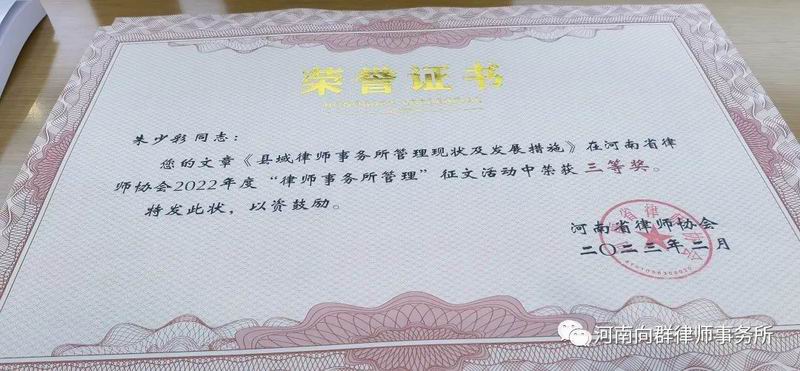 荣誉证书
朱少彩同志：
您的文章《县域律师事务所管理现状及发展措施》在河南省律
师协会2022年度“律师事务所管理”征文活动中荣获三等奖。
特发此状，以资鼓励。
河南省律师协会
二〇二三年二月
河南向群律师事务所